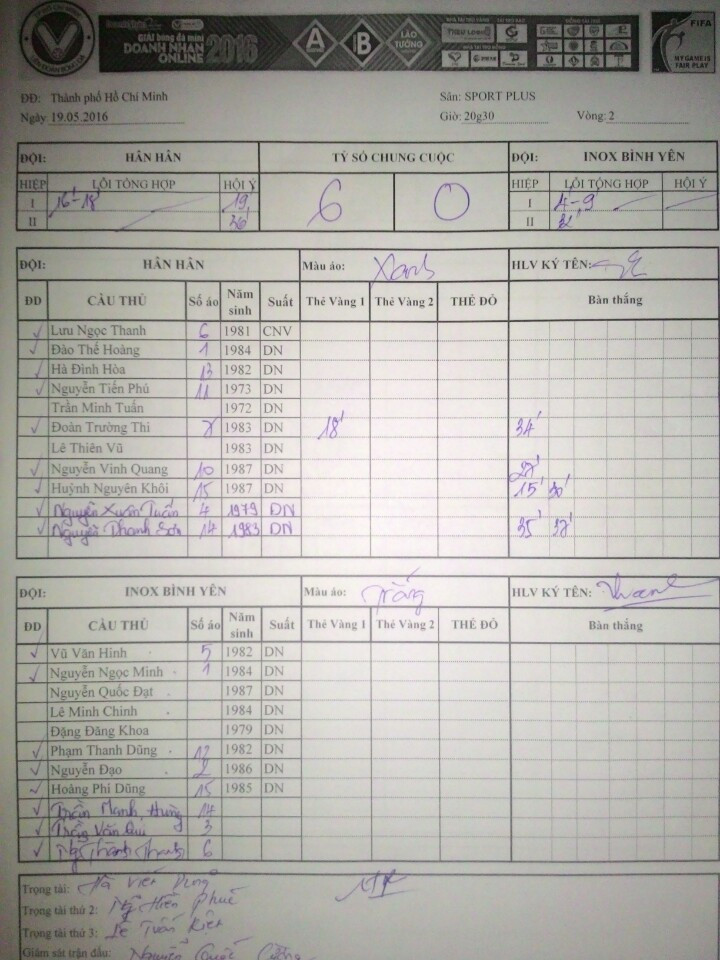 TP HỒ CHÍ MINH
GIẢI BÓNG ĐÁ MINI
DOANH NHÂN
ONLINE 2016
A
B
LÀO TƯỞNG
FIFA
MY GAME IS
FAIR PLAY
ĐĐ: Thành phố Hồ Chí Minh Sân: SPORT PLUS
Ngày 19.05.2016 Giờ: 20g30 Vòng: 2
ĐỘI: HÂN HÂN TỶ SỐ CHUNG CUỘC ĐỘI: INOX BÌNH YÊN
HIỆP LỖI TỔNG HỢP HỘI Ý 6 0 HIỆP LỖI TỔNG HỢP HỘI Ý
I 16'-18' 19' I 4'-9'
II 36' II
ĐỘI: HÂN HÂN Màu áo: Xanh HLV KÝ TÊN:
ĐD CẦU THỦ Số áo Năm sinh Suất Thẻ Vàng 1 Thẻ Vàng 2 THẺ ĐỎ Bàn thắng
✓ Lưu Ngọc Thanh 6 1981 CNV
✓ Đào Thế Hoàng 1 1984 DN
✓ Hà Đình Hòa 13 1982 DN
✓ Nguyễn Tiến Phú 11 1973 DN
Trần Minh Tuấn 1972 DN
✓ Đoàn Trường Thi 1983 DN 18' 34'
Lê Thiên Vũ 1983 DN
✓ Nguyễn Vinh Quang 10 1987 DN 27'
✓ Huỳnh Nguyên Khôi 15 1987 DN 15' 30'
✓ Nguyễn Xuân Tuấn 4 1979 DN
✓ Nguyễn Thanh Sơn 14 1983 DN 35' 37'
ĐỘI: INOX BÌNH YÊN Màu áo: Trắng HLV KÝ TÊN:
ĐD CẦU THỦ Số áo Năm sinh Suất Thẻ Vàng 1 Thẻ Vàng 2 THẺ ĐỎ Bàn thắng
✓ Vũ Văn Hinh 5 1982 DN
✓ Nguyễn Ngọc Minh 1 1984 DN
Nguyễn Quốc Đạt 1987 DN
Lê Minh Chinh 1984 DN
Đặng Đăng Khoa 1979 DN
✓ Phạm Thanh Dũng 12 1982 DN
✓ Nguyễn Đạo 2 1986 DN
✓ Hoàng Phi Dũng 15 1985 DN
✓ Trần Mạnh Hùng 14
✓ Trần Văn 3
✓ 6
Trọng tài: Hà Viết Dũng
Trọng tài thứ 2: Ng Hiền Phúc
Trọng tài thứ 3: Lê Tuấn Kiệt
Giám sát trận đấu: Nguyễn Quốc Cường